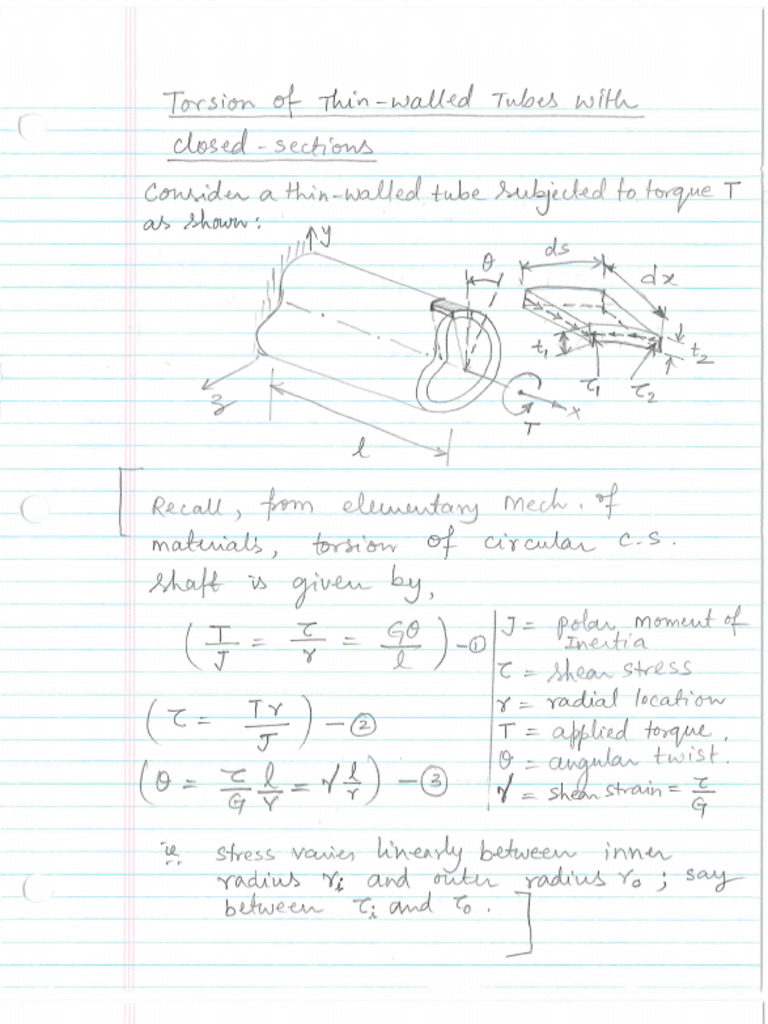 Torsion of Thin-walled Tubes with
closed-sections
Consider a thin-walled tube subjected to torque T
as shown:
y
θ
ds
dx
t₁
t₂
τ₁
τ₂
z
T
x
l
Recall, from elementary Mech. of
materials, torsion of circular c.s.
shaft is given by,
(T/J = τ/r = Gθ/l) — ①
(τ = Tr/J) — ②
(θ = τ/G l/r = γ l/r) — ③
J = polar moment of
Inertia
τ = shear stress
r = radial location
T = applied torque.
θ = angular twist.
γ = shear strain = τ/G
ie stress varies linearly between inner
radius rᵢ and outer radius r₀; say
between τᵢ and τ₀.